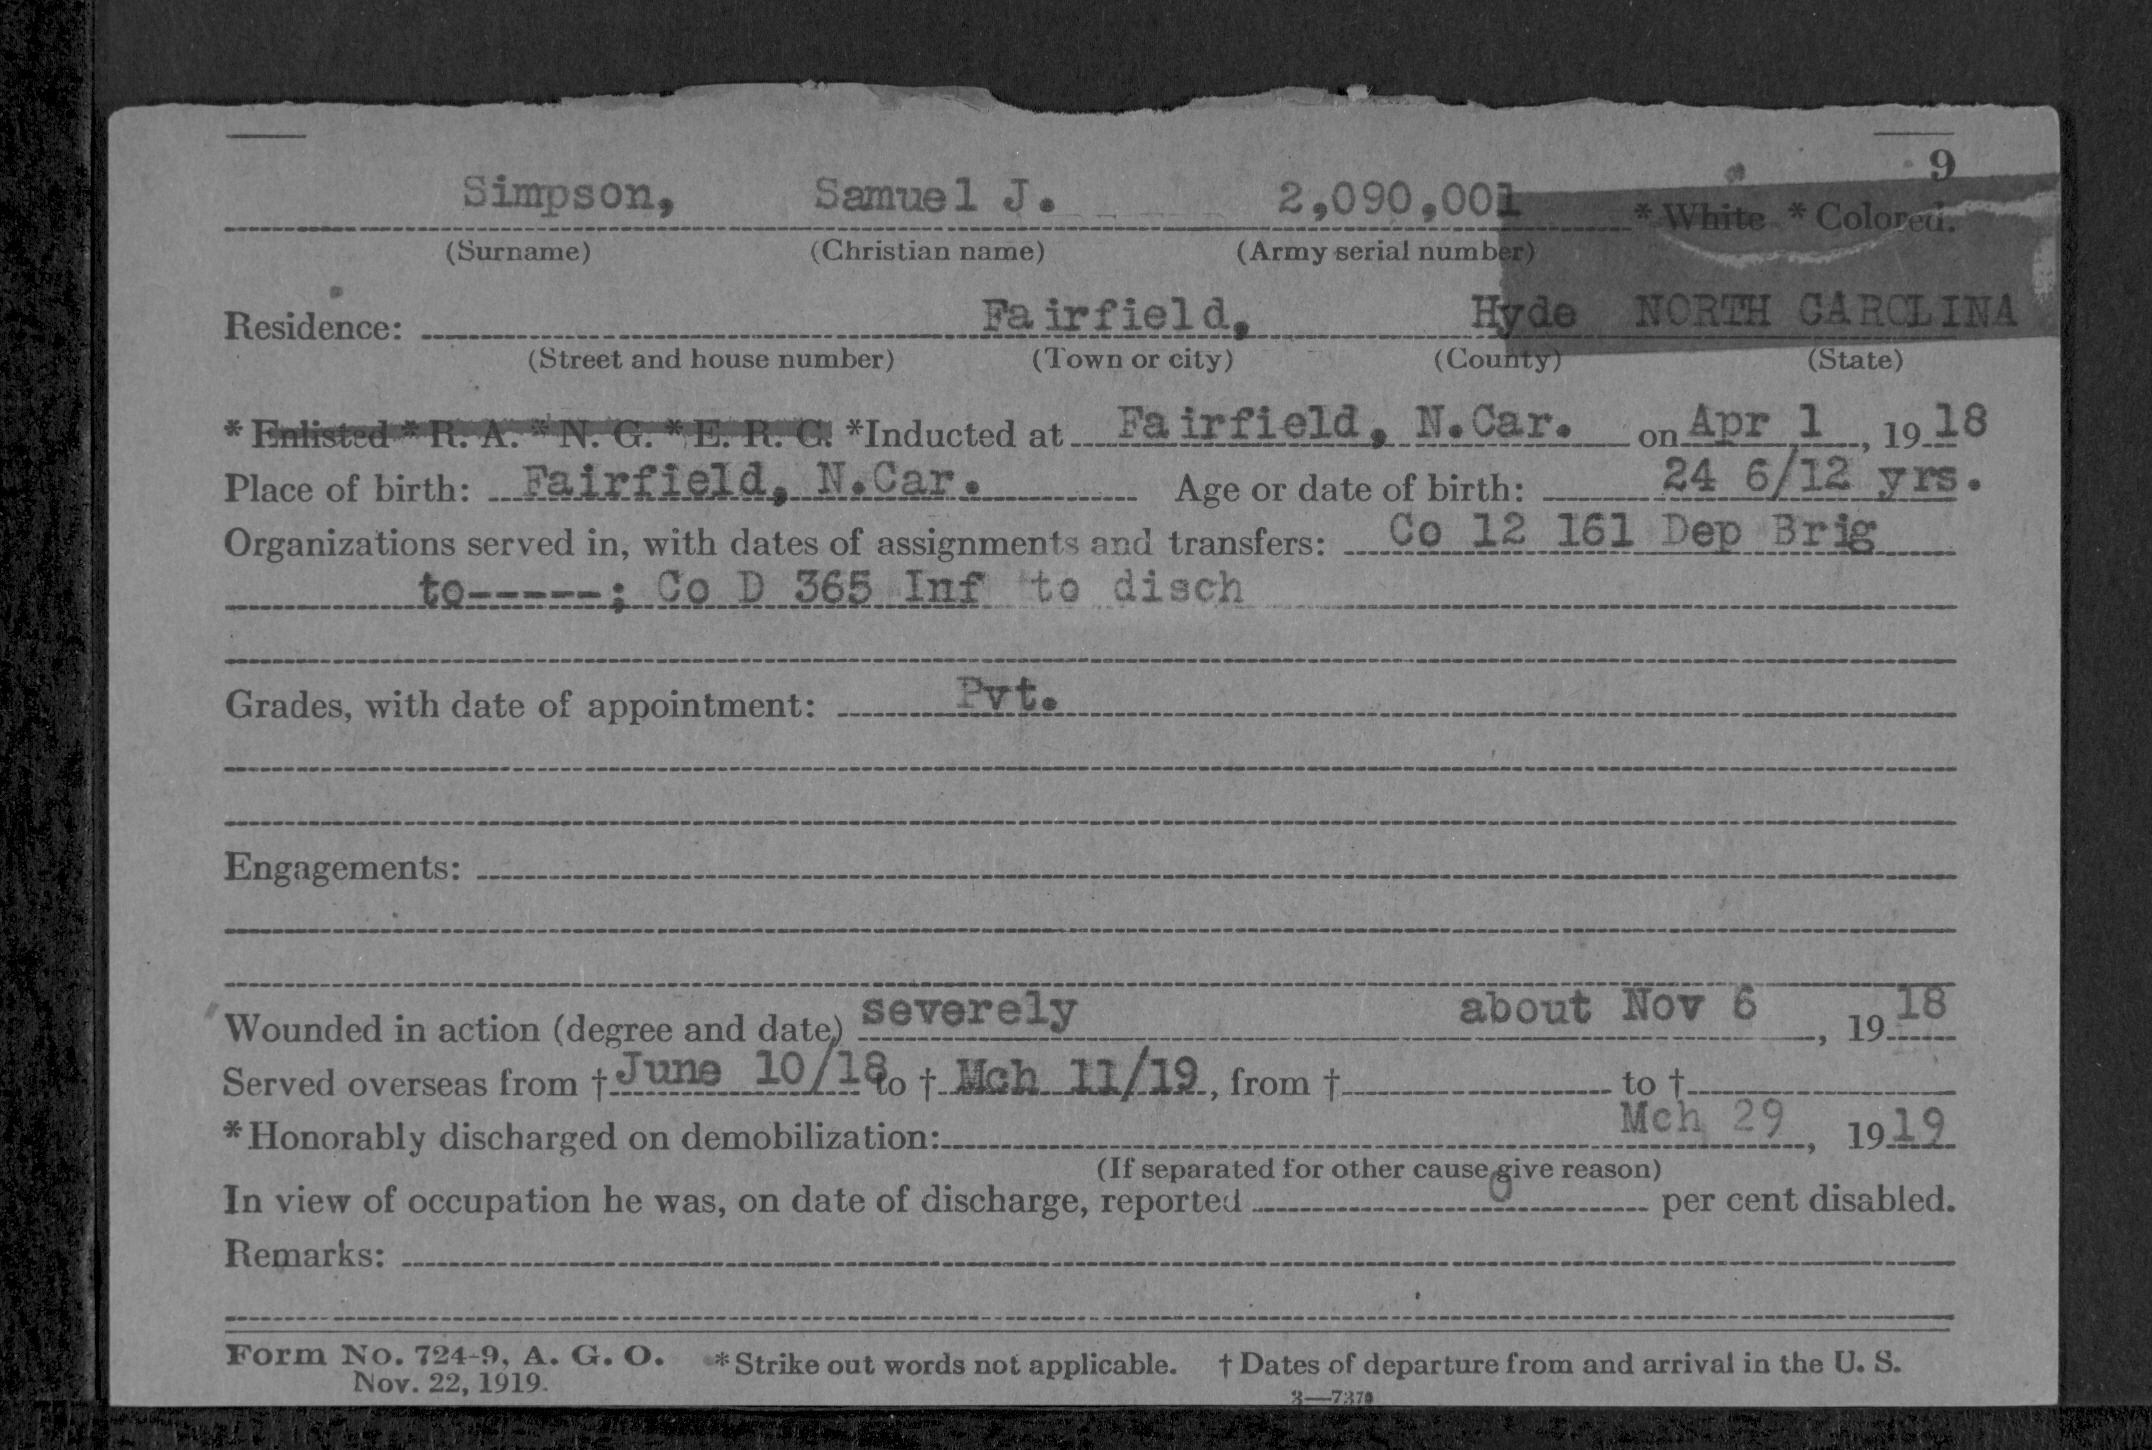 9
Simpson, Samuel J. 2,090,001 * White * Colored.
(Surname) (Christian name) (Army serial number)
Residence: Fairfield, Hyde NORTH CAROLINA
(Street and house number) (Town or city) (County) (State)
* Enlisted * R. A. * N. G. * E. R. C. *Inducted at Fairfield, N.Car. on Apr 1, 1918
Place of birth: Fairfield, N.Car. Age or date of birth: 24 6/12 yrs.
Organizations served in, with dates of assignments and transfers: Co 12 161 Dep Brig
to-----; Co D 365 Inf to disch
Grades, with date of appointment: Pvt.
Engagements:
Wounded in action (degree and date) severely about Nov 6, 1918
Served overseas from † June 10/18 to † Mch 11/19, from † to †
* Honorably discharged on demobilization: Mch 29, 1919
(If separated for other cause give reason)
In view of occupation he was, on date of discharge, reported 0 per cent disabled.
Remarks:
Form No. 724-9, A. G. O. * Strike out words not applicable. † Dates of departure from and arrival in the U. S.
Nov. 22, 1919.
3—7370